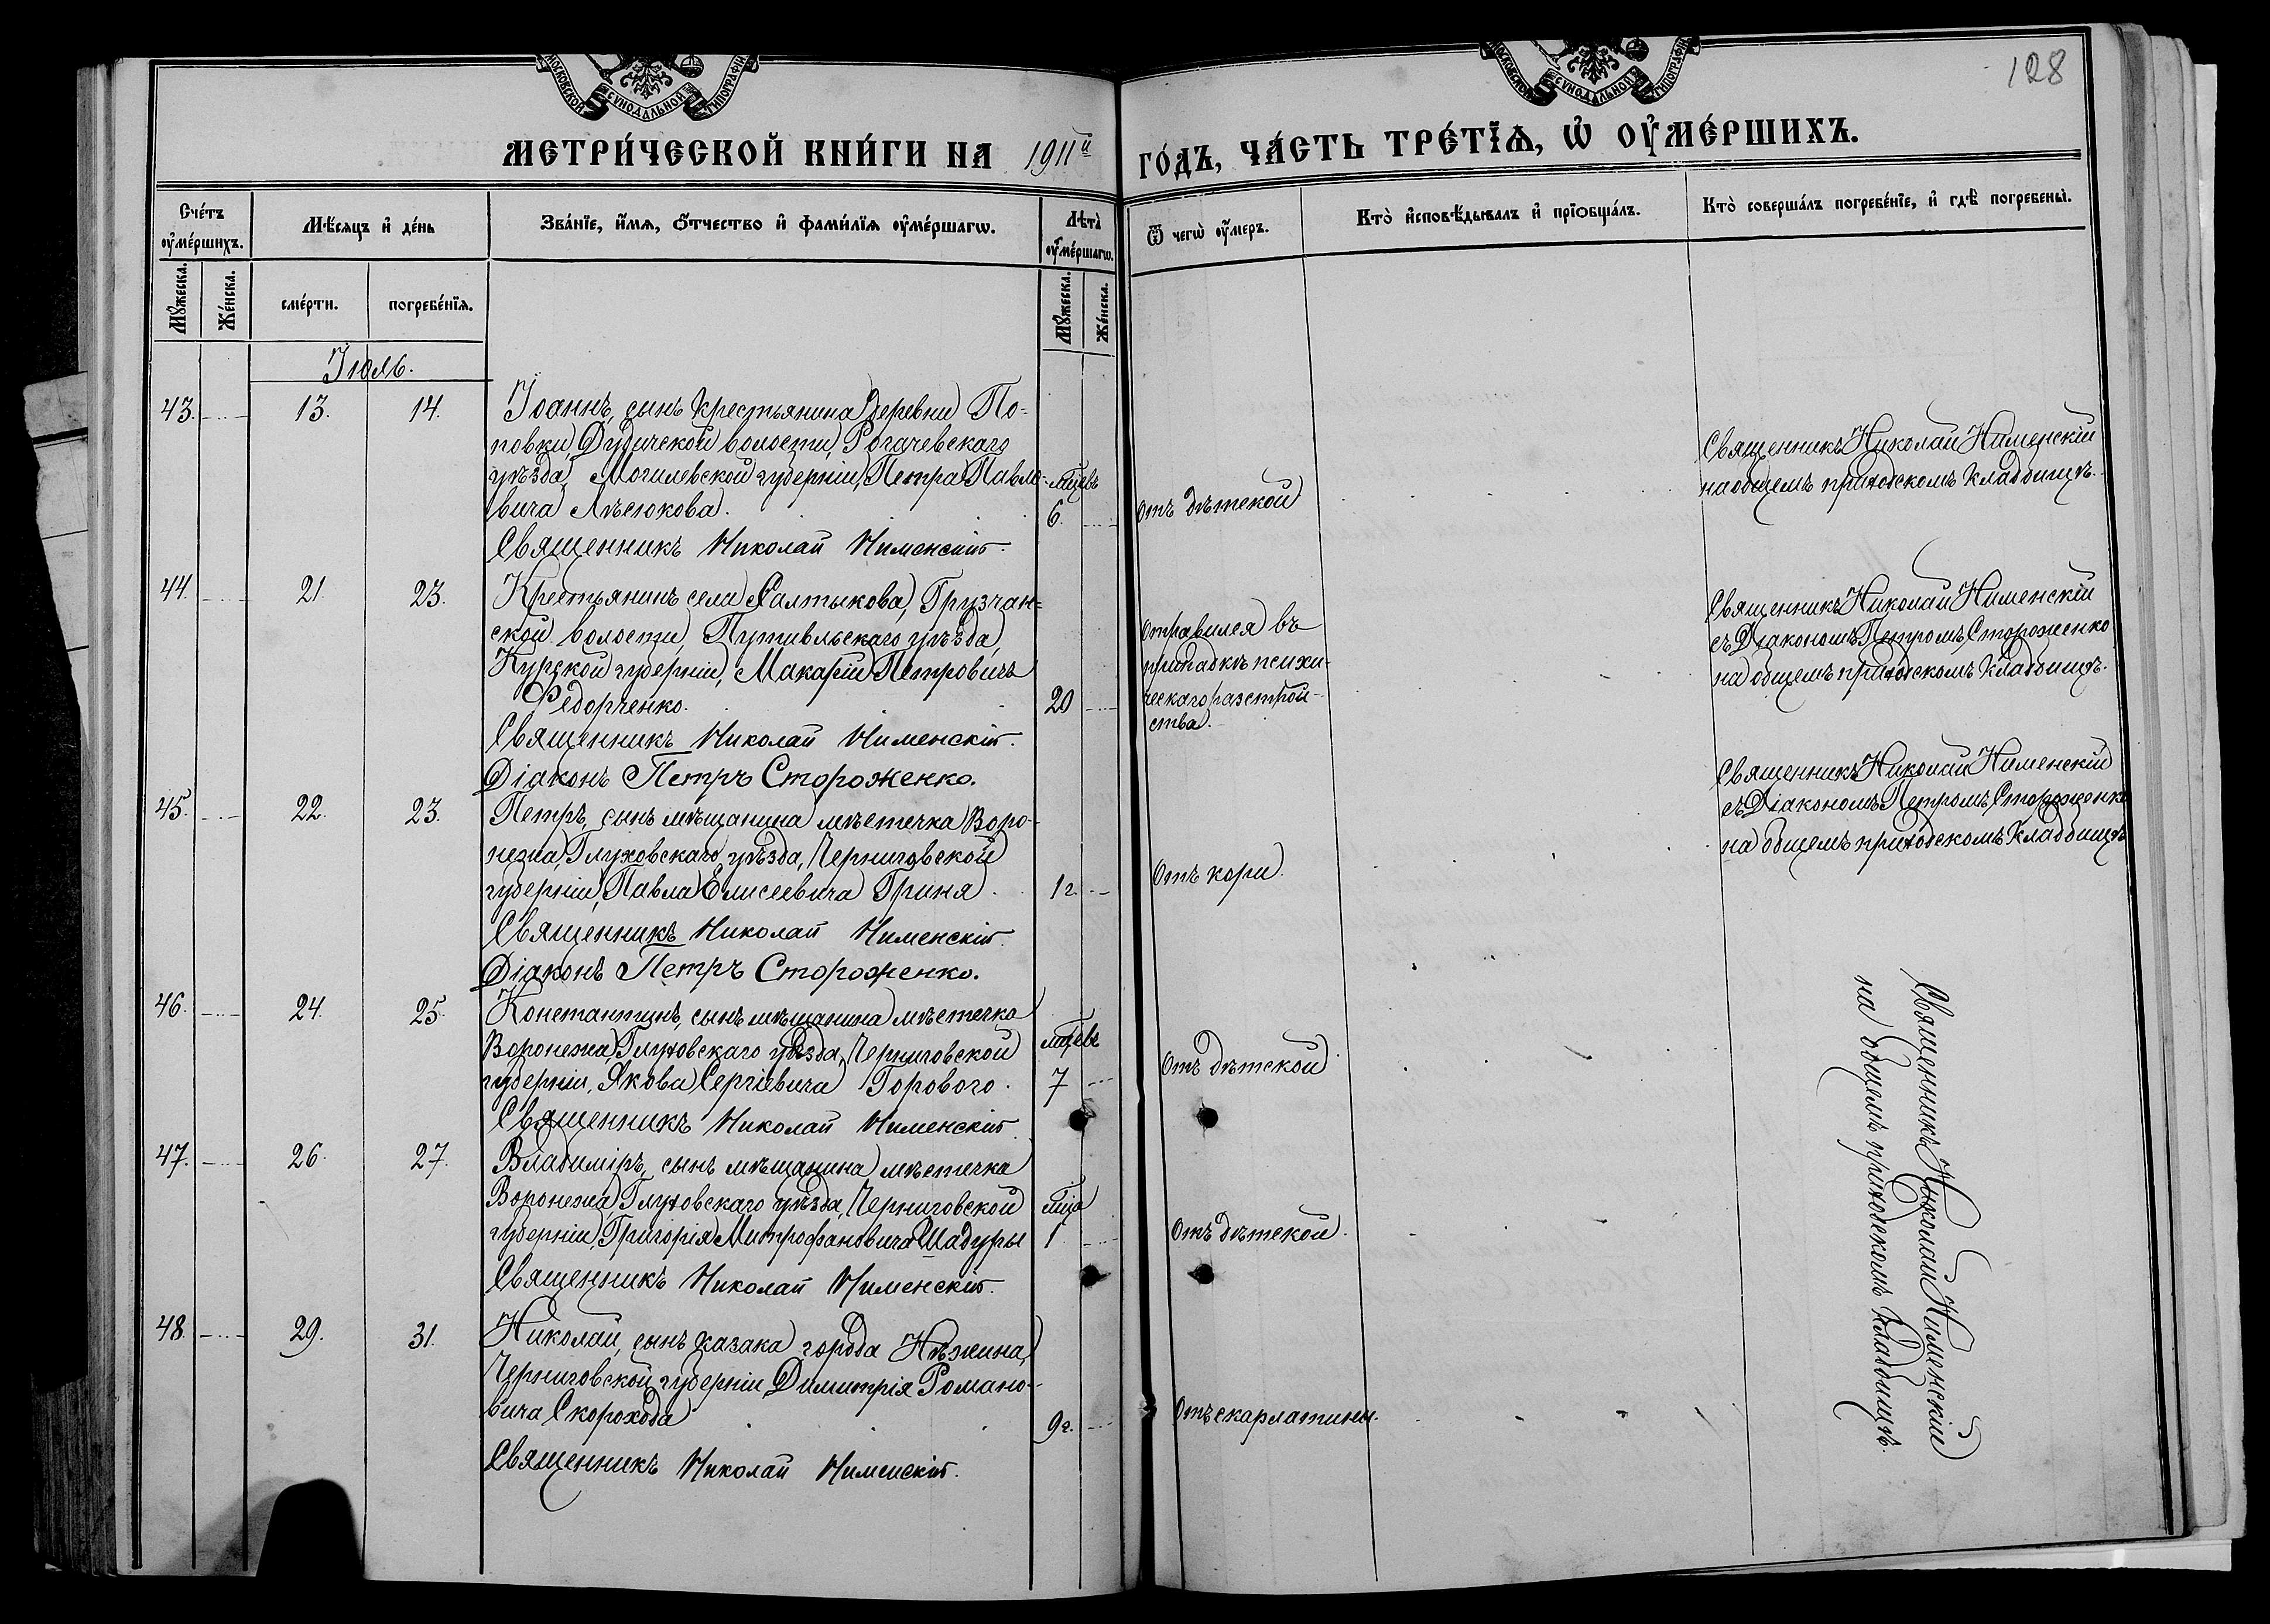 128
МОСКОВСКОЙ СѴНОДАЛЬНОЙ ТИПОГРАФІИ
МОСКОВСКОЙ СѴНОДАЛЬНОЙ ТИПОГРАФІИ
МЕТРИ́ЧЕСКОЙ КНИ́ГИ НА 1911й ГО́ДЪ, ЧА́СТЬ ТРЕ́ТЇѦ, Ѡ҆ ОУ҆МЕ́РШИХЪ.
Сче́тъ оу҆ме́ршихъ.
Мꙋ́жеска.
Же́нска.
Мѣ́сяцъ и҆ де́нь
сме́рти.
погребе́нїѧ.
Зва́нїе, и҆́мѧ, ѻ҆́тчество и҆ фами́лїѧ оу҆ме́ршагѡ.
Лѣ̀та оу҆ме́ршагѡ.
Мꙋ́жеска.
Же́нска.
Ѿ чегѡ̀ оу҆́меръ.
Кто̀ и҆сповѣ́дывалъ и҆ прїѻбща́лъ.
Кто̀ соверша́лъ погребе́нїе, и҆ гдѣ̀ погребены̀.
Іюль.
43.
13.
14.
Іоаннъ, сынъ крестьянина деревни По-
повки, Дудичской волости, Рогачевскаго
уѣзда, Могилевской губерніи, Петра Павло-
вича Лѣсюкова.
Священникъ Николай Нименскій.
мцевъ
6.
отъ дѣтской
Священникъ Николай Нименскій
на общемъ приходскомъ кладбищѣ.
44.
21.
23.
Крестьянинъ села Салтыкова, Грузчан-
ской волости, Путивльскаго уѣзда,
Курской губерніи, Макарій Петровичъ
Федорченко.
Священникъ Николай Нименскій.
Діаконъ Петръ Стороженко.
20
отравился въ
припадкѣ психи-
ческаго разстрой-
ства.
Священникъ Николай Нименскій
съ Діакономъ Петромъ Стороженко
на общемъ приходскомъ кладбищѣ.
45.
22.
23.
Петръ, сынъ мѣщанина мѣстечка Воро-
нежа, Глуховскаго уѣзда, Черниговской
губерніи, Павла Елисеевича Гриня.
Священникъ Николай Нименскій.
Діаконъ Петръ Стороженко.
1г.
Отъ кори.
Священникъ Николай Нименскій
съ Діакономъ Петромъ Стороженко
на общемъ приходскомъ кладбищѣ
46.
24.
25.
Константинъ, сынъ мѣщанина мѣстечка
Воронежа, Глуховскаго уѣзда, Черниговской
губерніи, Якова Сергіевича Горового.
Священникъ Николай Нименскій.
мцевъ
7
Отъ дѣтской
47.
26.
27.
Владиміръ, сынъ мѣщанина мѣстечка
Воронежа, Глуховскаго уѣзда, Черниговской
губерніи, Григорія Митрофановича Шадуры
Священникъ Николай Нименскій.
мца
1
Отъ дѣтской.
48.
29.
31.
Николай, сынъ казака города Нѣжина,
Черниговской губерніи, Димитрія Романо-
вича Скорохода
Священникъ Николай Нименскій.
9г.
Отъ скарлатины.
Священникъ Николай Нименскій
на общемъ приходскомъ кладбищѣ.